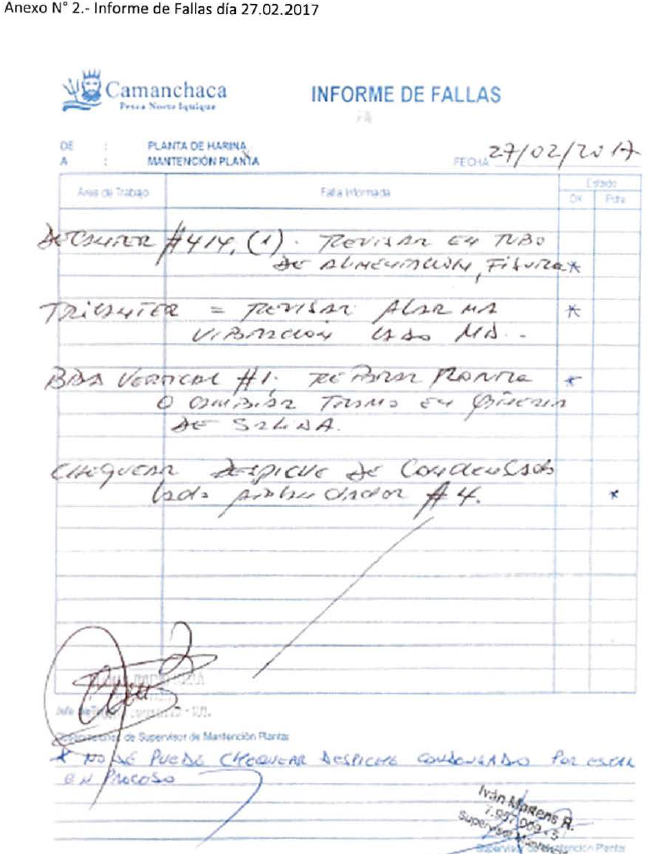 Anexo N° 2.- Informe de Fallas día 27.02.2017
Camanchaca
Pesca Norte Iquique
INFORME DE FALLAS
DE : PLANTA DE HARINA
A : MANTENCIÓN PLANTA
FECHA 27/02/2017
Area de Trabajo Falla Informada Estado
OK Pdte
DECANTER #414, (1). REVISAR EN TUBO
DE ALIMENTACION, FISURA *
TRICANTER = REVISAR ALARMA *
VIBRACION LADO MD.
BBA VERTICAL #1. REPARAR *
O CAMBIAR TRAMO EN
DE SALIDA.
CHEQUEAR DESPICHE DE CONDENSADO
lado #4. *
Jefe de
de Supervisor de Mantención Planta:
* NO SE PUEDE CHEQUEAR DESPICHE CONDENSADO POR ESTAR
EN PROCESO
Iván R.
Supervisor
Supervisor de Mantención Planta